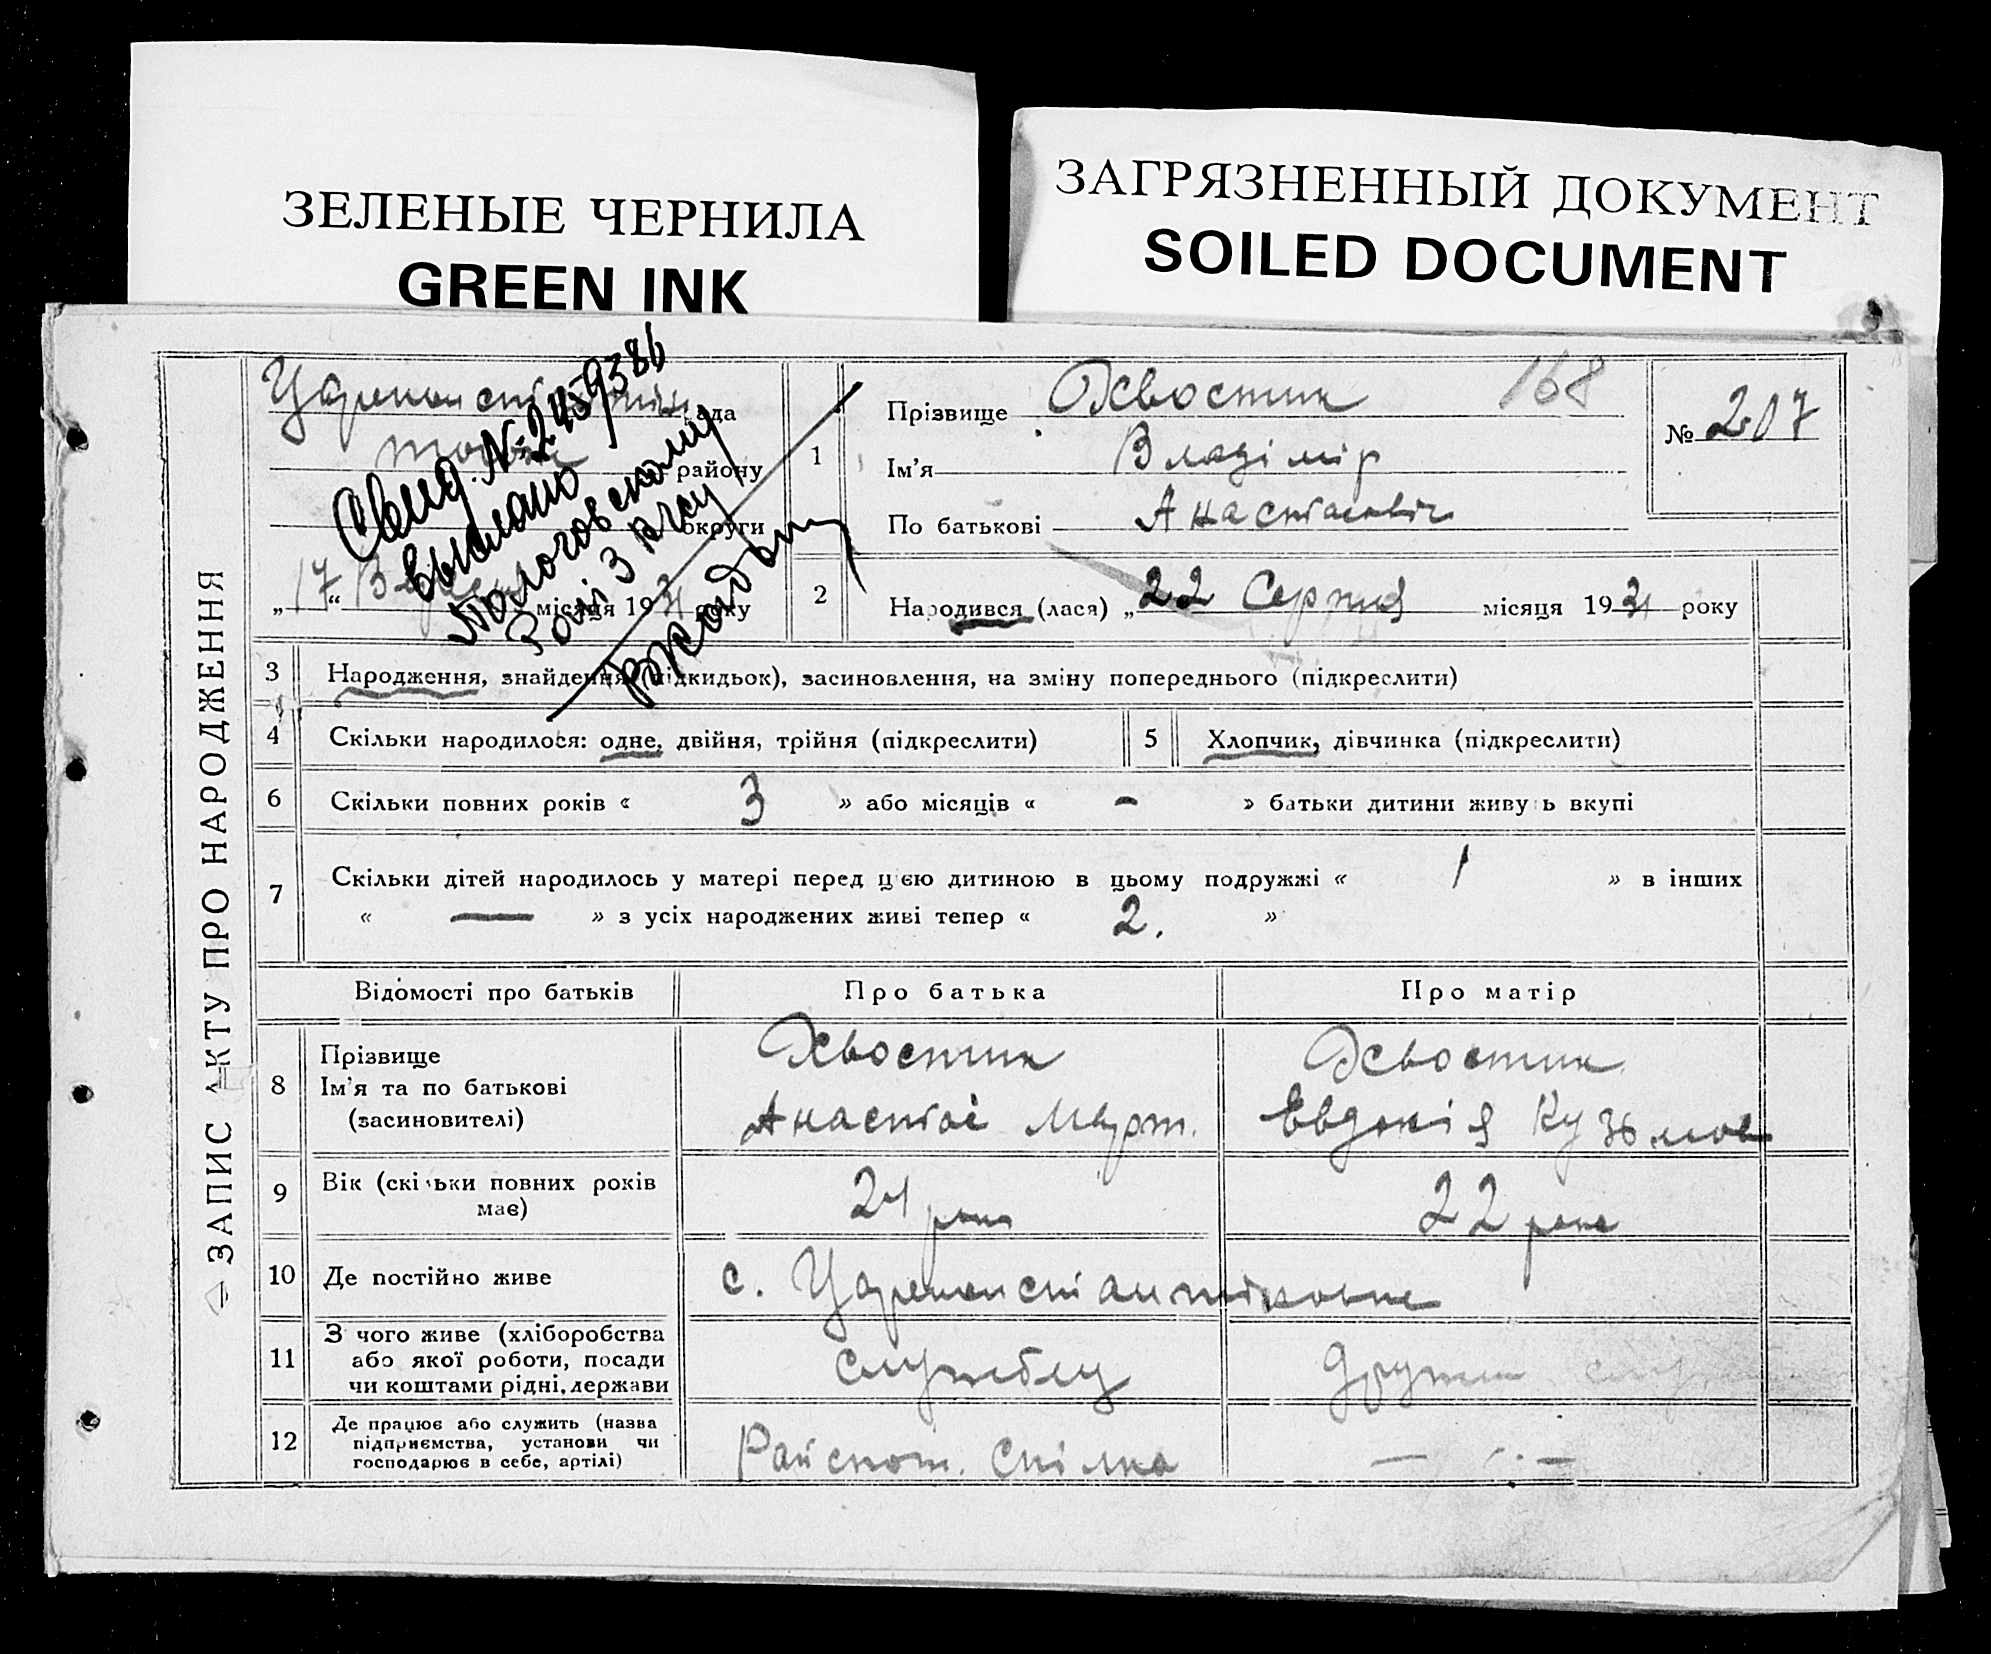 ЗЕЛЕНЫЕ ЧЕРНИЛА
GREEN INK
ЗАГРЯЗНЕННЫЙ ДОКУМЕНТ
SOILED DOCUMENT
ЗАПИС АКТУ ПРО НАРОДЖЕННЯ
рада
району
округи
„17“ місяця 1931 року
Свид. №
выслано
Пологовскому
ЗАГС
1
Прізвище Хвостик 168
Ім’я Владімір
По батькові Анастасовіч
№ 207
2
Народився (лася) „22 Серпня місяця 1931 року
3 Народження, знайдення (підкидьок), засиновлення, на зміну попереднього (підкреслити)
4 Скільки народилося: одне, двійня, трійня (підкреслити)
5 Хлопчик, дівчинка (підкреслити)
6 Скільки повних років « 3 » або місяців « - » батьки дитини живуть вкупі
7 Скільки дітей народилось у матері перед цією дитиною в цьому подружжі « 1 » в інших
« — » з усіх народжених живі тепер « 2. »
Відомості про батьків Про батька Про матір
8 Прізвище
Ім’я та по батькові
(засиновителі)
Хвостик
Анастас Март.
Хвостик
Евдокія Кузьмов
9 Вік (скільки повних років
має)
24 роки
22 роки
10 Де постійно живе с. Цареконстантіновке
11 З чого живе (хліборобства
або якої роботи, посади
чи коштами рідні, держави
службу
Дружин
12 Де працює або служить (назва
підприємства, установи чи
господарює в себе, артілі)
Райспож. Спілка